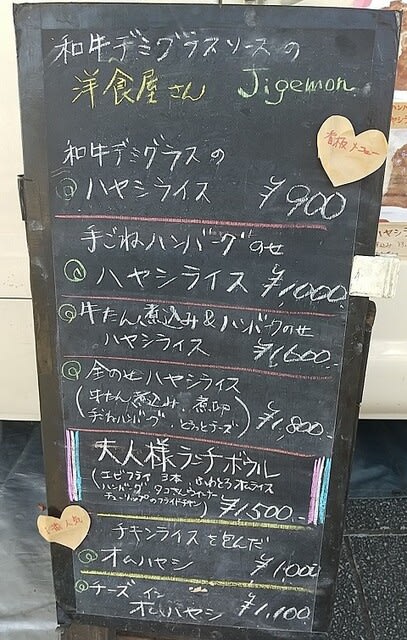 和牛デミグラスソースの
洋食屋さん Jigemon
看板メニュー
和牛デミグラスの
ハヤシライス ¥900
手ごねハンバーグのせ
ハヤシライス ¥1,000
牛たん煮込み&ハンバーグのせ
ハヤシライス ¥1,600
全のせハヤシライス
(牛たん煮込み、煮卵
手ごねハンバーグ、とろっとチーズ) ¥1,800
大人様ランチボウル
(エビフライ 3本 ふわとろオムライス
ハンバーグ タコさんウインナー
チューリップのフライドチキン) ¥1,500
人気
チキンライスを包んだ
オムハヤシ ¥1,000
チーズイン
オムハヤシ ¥1,100